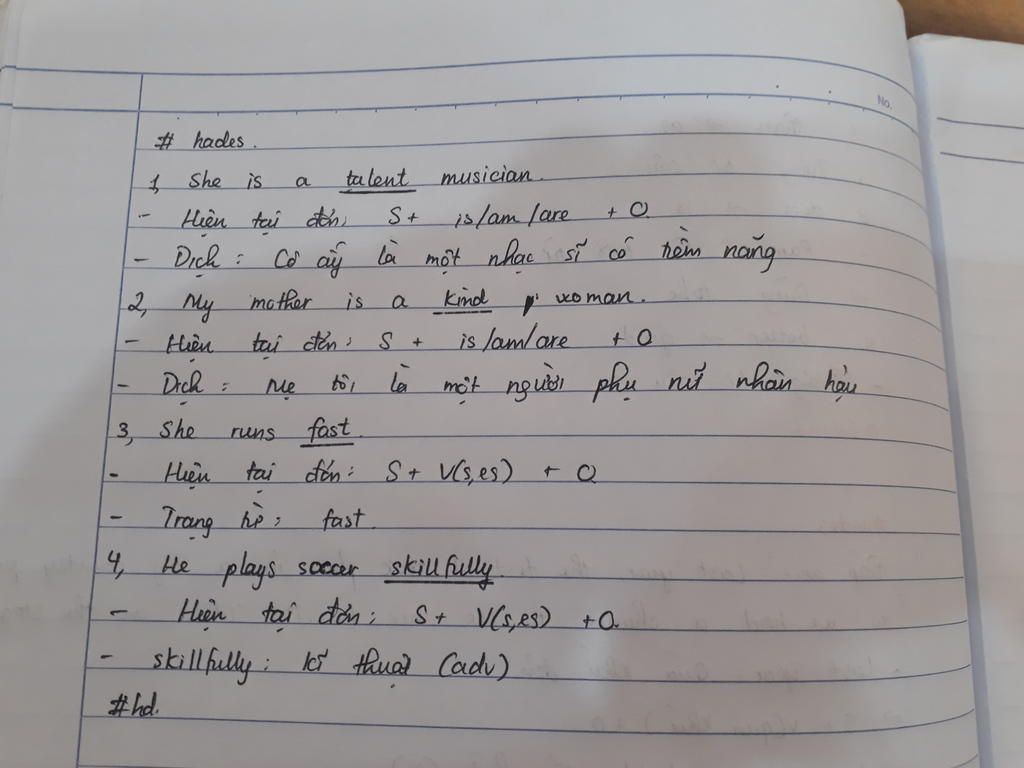 No.
# hades.
1, She is a talent musician.
- Hiện tại đơn: S+ is/am/are + O
- Dịch: Cô ấy là một nhạc sĩ có tiềm năng
2, My mother is a kind woman.
- Hiện tại đơn: S + is/am/are + O
- Dịch: Mẹ tôi là một người phụ nữ nhân hậu
3, She runs fast.
- Hiện tại đơn: S+ V(s,es) + O
- Trạng từ: fast.
4, He plays soccer skillfully.
- Hiện tại đơn: S+ V(s,es) +O
- skillfully: kĩ thuật (adv)
#hd.